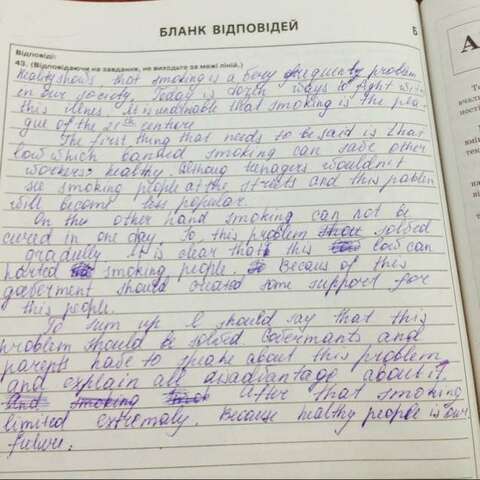 БЛАНК ВІДПОВІДЕЙ
Б
Відповіді:
43. (Відповідаючи на завдання, не виходьте за межі ліній.)
that smoking is a problem
in our society. Today is ways to fight with
this illnes. It is that smoking is the pla-
gue of the 21th
The first thing that needs to be said is that
low which banned smoking can safe other
workers healthy. teenagers wouldn't
see smoking people at the streets and this
will become less popular.
On the other hand smoking can not be
cured in one day. So, this problem solved
gradully. It is clear that this low can
smoking people. Becaus of this
goverment should created some support for
this people.
To sum up I should say that this
problem should be solved. Govermants and
parents have to speake about this problem
and explain all disadvantage about it,
And smoking
After that smoking
limited extremaly. Because healthy people is our
future.
А